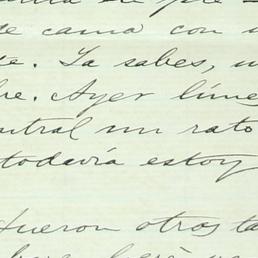 de cama con
te. Ya sabes,
re. Ayer lunes
ntral un rato
todavía estoy
fueron otros ta